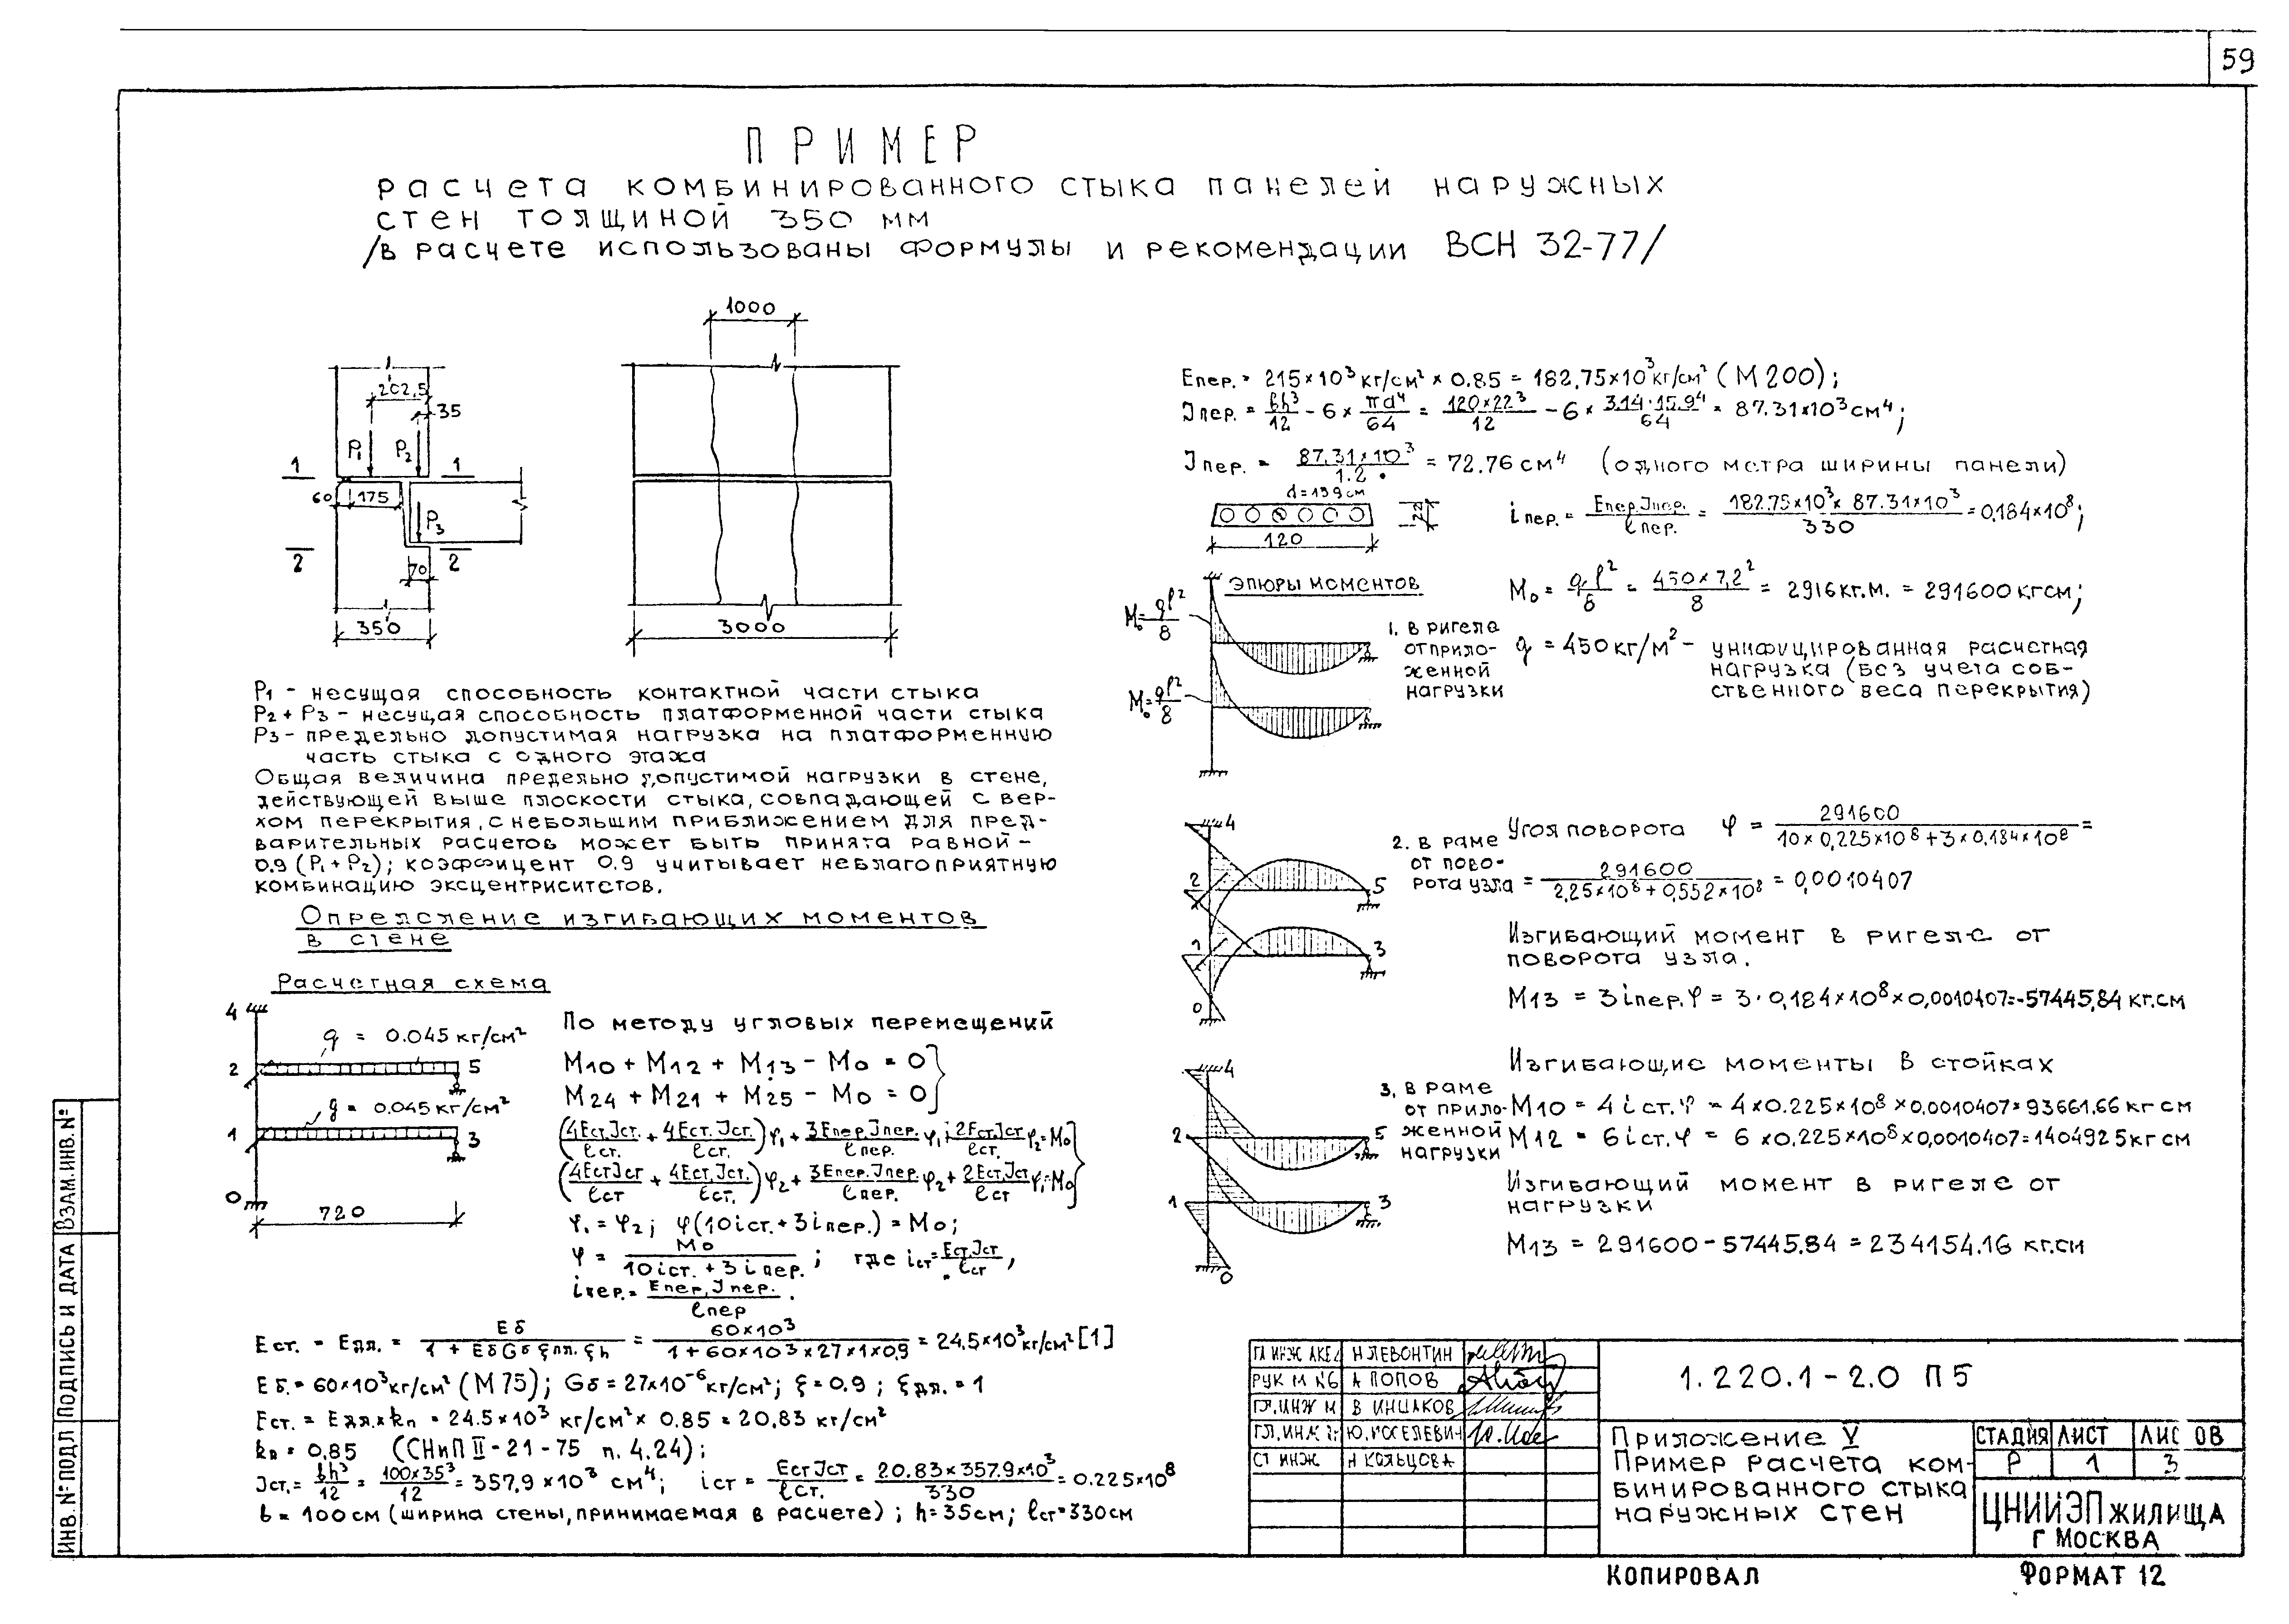 59
ПРИМЕР
расчета комбинированного стыка панелей наружных
стен толщиной 350 мм
/в расчете использованы формулы и рекомендации ВСН 32-77/
1000
202,5
35
P1 P2
1 1
60 175
P3
2 2
70
350
3000
P1 - несущая способность контактной части стыка
P2 + P3 - несущая способность платформенной части стыка
P3 - предельно допустимая нагрузка на платформенную
часть стыка с одного этажа
Общая величина предельно допустимой нагрузки в стене,
действующей выше плоскости стыка, совпадающей с вер-
хом перекрытия, с небольшим приближением для пред-
варительных расчетов может быть принята равной -
0.9 (P1 + P2); коэффицент 0.9 учитывает неблагоприятную
комбинацию эксцентриситетов.
Определение изгибающих моментов
в стене
Расчетная схема
4
q = 0.045 кг/см²
2 5
q = 0.045 кг/см²
1 3
0
720
По методу угловых перемещений
M10 + M12 + M13 - M0 = 0
M24 + M21 + M25 - M0 = 0
(4Eст.Jст./ℓст. + 4Eст.Jст./ℓст.)φ1 + 3Eпер.Jпер./ℓпер. φ1 + 2Eст.Jст/ℓст. φ2 = M0
(4EстJст/ℓст + 4Eст.Jст./ℓст.)φ2 + 3Eпер.Jпер./ℓпер. φ2 + 2Eст.Jст/ℓст φ1 = M0
φ1 = φ2; φ(10iст. + 3iпер.) = M0;
φ = M0/10iст. + 3iпер. ; где iст = Eст.Jст/ℓст ,
iпер. = Eпер.Jпер./ℓпер .
Eст. = Eдл. = Eδ/1 + EδGδ ξдл. ξh = 60×10³/1 + 60×10³×27×1×0,9 = 24.5×10³ кг/см² [1]
Eδ. = 60×10³ кг/см² (М 75); Gδ = 27×10⁻⁶ кг/см²; ξ = 0.9 ; ξдл. = 1
Eст. = Eдл.×kп = 24.5×10³ кг/см² × 0.85 = 20,83 кг/см²
kп = 0,85 (СНиП II-21-75 п. 4.24);
Jст. = bh³/12 = 100×35³/12 = 357,9 × 10³ см⁴; iст = EстJст/ℓст. = 20.83×357.9×10³/330 = 0.225×10⁸
b = 100 см (ширина стены, принимаемая в расчете) ; h = 35 см; ℓст = 330 см
Eпер. = 215×10³ кг/см² × 0.85 = 182,75×10³ кг/см² (М 200);
Jпер. = bh³/12 - 6 × πd⁴/64 = 120×22³/12 - 6 × 3.14·15.9⁴/64 = 87.31×10³ см⁴;
Jпер. = 87.31×10³/1.2 = 72.76 см⁴ (одного метра ширины панели)
d = 159 см
22
120
iпер. = Eпер.Jпер./ℓпер. = 182.75×10³ × 87.31×10³/330 = 0,184×10⁸;
Эпюры моментов
M0 = qℓ²/8
M0 = qℓ²/8
1. в ригеле
от прило-
женной
нагрузки
M0 = qℓ²/8 = 450×7,2²/8 = 2916 кг.м. = 291600 кгсм;
q = 450 кг/м² - унифицированная расчетная
нагрузка (без учета соб-
ственного веса перекрытия)
4
2 5
1 3
0
2. в раме
от пово-
рота узла
Угол поворота φ = 291600/10×0,225×10⁸ + 3×0,184×10⁸ =
= 291600/2,25×10⁸ + 0,552×10⁸ = 0,0010407
Изгибающий момент в ригеле от
поворота узла.
M13 = 3iпер.φ = 3·0,184×10⁸×0,0010407=-57445,84 кг.см
4
2 5
1 3
0
3. в раме
от прило-
женной
нагрузки
Изгибающие моменты в стойках
M10 = 4iст.φ = 4×0.225×10⁸×0,0010407=93661.66 кг см
M12 = 6iст.φ = 6×0.225×10⁸×0,0010407=140492 5 кг см
Изгибающий момент в ригеле от
нагрузки
M13 = 291600 - 57445.84 = 234154.16 кг.см
РУК М №6 А ПОПОВ
ГЛ. ИНЖ М В ИНШАКОВ
СТ ИНЖ Н КОЛЬЦОВА
1.220.1-2.0 П5
Приложение V
Пример расчета ком-
бинированного стыка
наружных стен
СТАДИЯ ЛИСТ ЛИС ОВ
Р 1 3
ЦНИИЭП жилища
г Москва
ИНВ. № ПОДЛ ПОДПИСЬ И ДАТА ВЗАМ. ИНВ. №
КОПИРОВАЛ ФОРМАТ 12